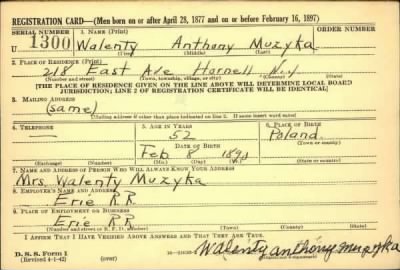 REGISTRATION CARD—(Men born on or after April 28, 1877 and on or before February 16, 1897)
SERIAL NUMBER 1. NAME (Print) ORDER NUMBER
U 1300 Walenty Anthony Muzyka
(First) (Middle) (Last)
2. PLACE OF RESIDENCE (Print)
218 East Ave Hornell N.Y
(Number and street) (Town, township, village, or city) (County) (State)
[THE PLACE OF RESIDENCE GIVEN ON THE LINE ABOVE WILL DETERMINE LOCAL BOARD
JURISDICTION; LINE 2 OF REGISTRATION CERTIFICATE WILL BE IDENTICAL]
3. MAILING ADDRESS
(same)
[Mailing address if other than place indicated on line 2. If same insert word same]
4. TELEPHONE 5. AGE IN YEARS 6. PLACE OF BIRTH
52 Poland
DATE OF BIRTH (Town or county)
Feb 8 1890
(Exchange) (Number) (Mo.) (Day) (Yr.) (State or country)
7. NAME AND ADDRESS OF PERSON WHO WILL ALWAYS KNOW YOUR ADDRESS
Mrs. Walenty Muzyka
8. EMPLOYER'S NAME AND ADDRESS
Erie R.R.
9. PLACE OF EMPLOYMENT OR BUSINESS
Erie R.R
(Number and street or R. F. D. number) (Town) (County) (State)
I AFFIRM THAT I HAVE VERIFIED ABOVE ANSWERS AND THAT THEY ARE TRUE.
D. S. S. Form 1
(Revised 4-1-42) (over) Walenty anthony muzyka